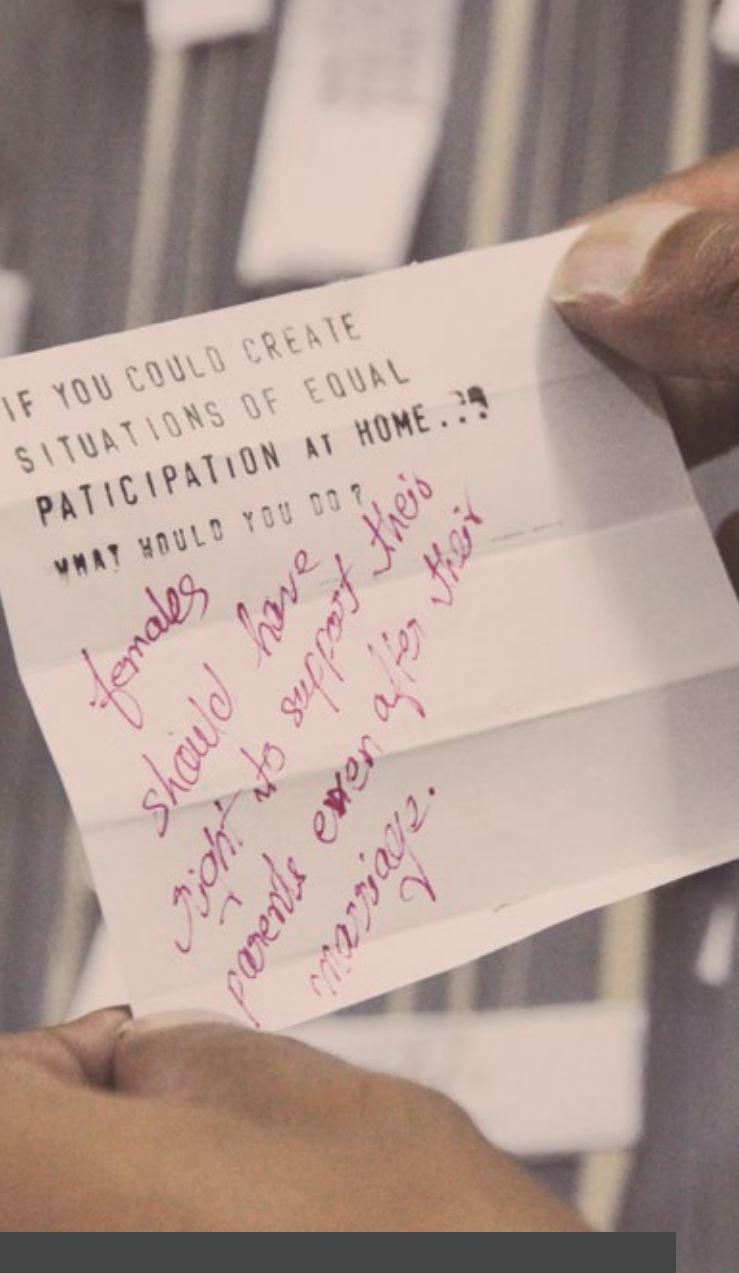 IF YOU COULD CREATE
SITUATIONS OF EQUAL
PATICIPATION AT HOME..?
WHAT WOULD YOU DO?
females
should have
right to support their
parents even after their
marriage.